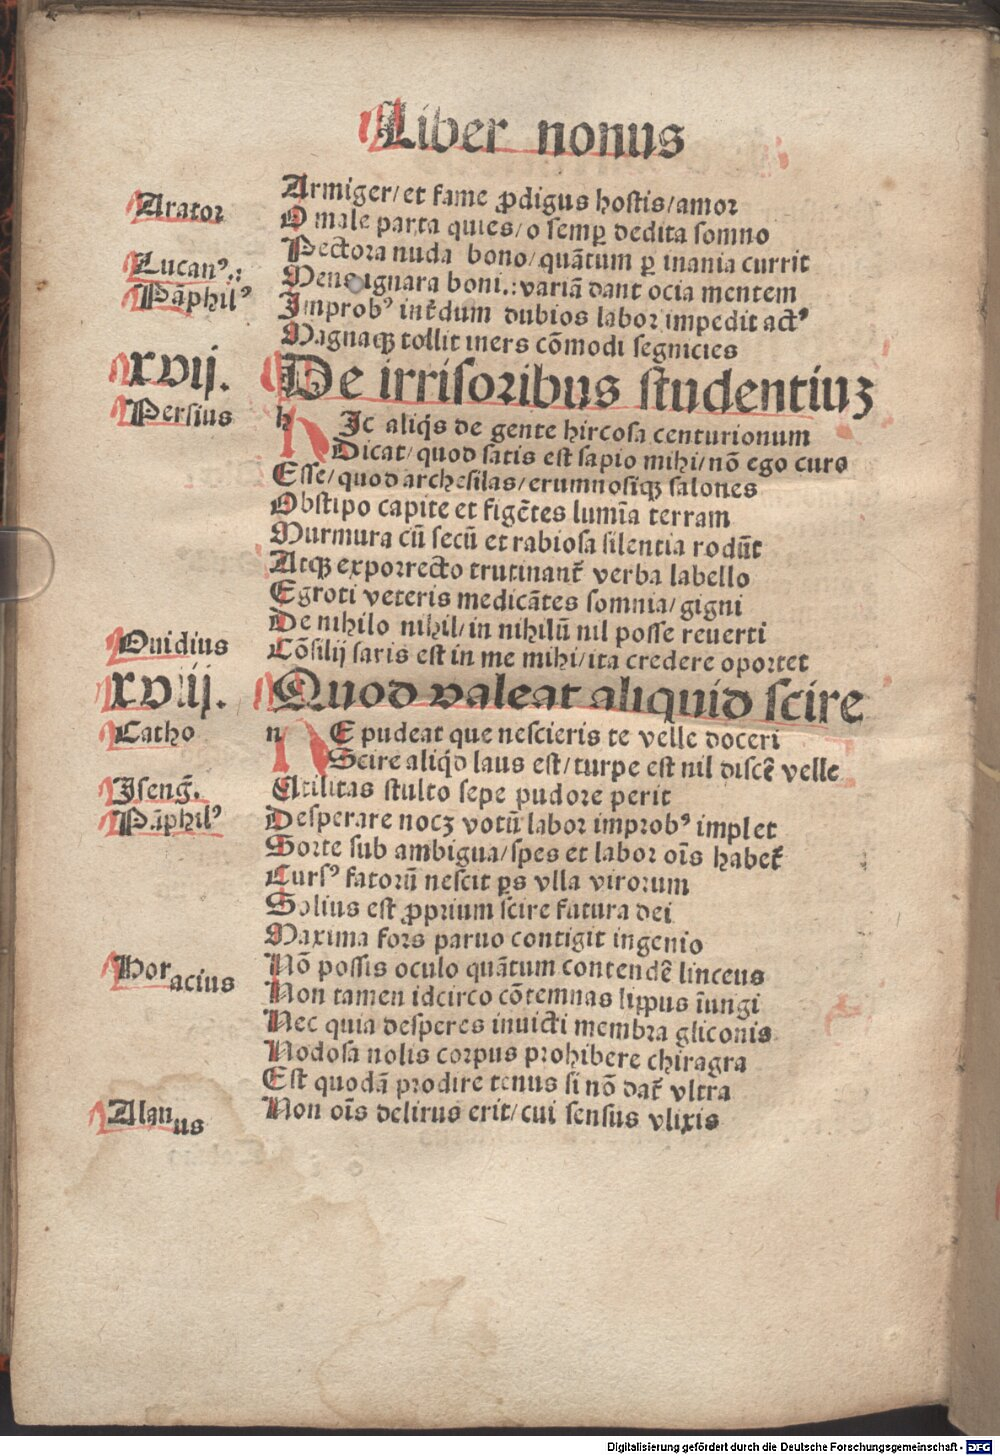 Liber nonus
Armiger/et fame ꝓdigus hostis/amor
Arator
O male parta quies/o semꝑ dedita somno
Pectora nuda bono/quātum ꝑ inania currit
Lucanꝰ.:
Mens ignara boni.:variā dant ocia mentem
Pāphilꝰ
Improbꝰ int̄dum dubios labor impedit actꝰ
Magnaqꝫ tollit iners cōmodi segnicies
xvij. De irrisoribus studentiuꝫ
Persius
h Ic aliq̇s de gente hircosa centurionum
Dicat/quod satis est sapio mihi/nō ego curo
Esse/quod archesilas/erumnosiqꝫ salones
Obstipo capite et figētes lumīa terram
Murmura cū secū et rabiosa silentia rodūt
Atqꝫ exporrecto trutinant̄ verba labello
Egroti veteris medicātes somnia/gigni
De nihilo nihil/in nihilū nil posse reuerti
Ouidius
Cōsilij satis est in me mihi/ita credere oportet
xviij. Quod valeat aliquid scire
Catho
n E pudeat que nescieris te velle doceri
Scire aliq̇d laus est/turpe est nil discē velle
Isenḡ.
Utilitas stulto sepe pudore perit
Pāphilꝰ
Desperare nocꝫ votū labor improbꝰ implet
Sorte sub ambigua/spes et labor oīs habet̄
Cursꝰ fatorū nescit ꝑs vlla virorum
Solius est ꝓprium scire futura dei
Maxima fors paruo contigit ingenio
Horacius
Nō possis oculo quātum contendē linceus
Non tamen idcirco cōtemnas lippus īungi
Nec quia desperes inuicti membra gliconis
Nodosa nolis corpus prohibere chiragra
Est quodā prodire tenus si nō dat̄ vltra
Alanus
Non oīs delirus erit/cui sensus vlixis
Digitalisierung gefördert durch die Deutsche Forschungsgemeinschaft - DFG